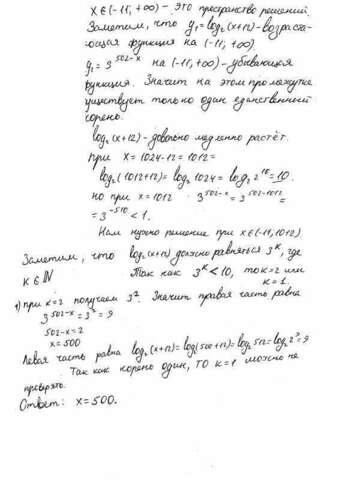 x∈(-11,+∞) - это пространство решений.
Заметим, что y₁=log₂(x+12) - возраста-
ющая функция на (-11,+∞).
y₂=3^(502-x) на (-11,+∞) - убывающая
функция. Значит на этом промежутке
существует только один единственный
корень.
log₂(x+12) - довольно медленно растёт.
при x=1024-12=1012=
log₂(1012+12)=log₂1024=log₂2¹⁰=10.
но при x=1012 3^(502-x)=3^(502-1012)=
=3^(-510)<1.
Нам нужно решение при x∈(-11,1012)
Заметим, что log₂(x+12) должно равняться 3ᵏ, где
k∈ℕ Так как 3ᵏ<10, то k=2 или
k=1.
1) при k=2 получаем 3². Значит правая часть равна
3^(502-x)=3²=9
502-x=2
x=500
Левая часть равна log₂(x+12)=log₂(500+12)=log₂512=log₂2⁹=9
Так как корень один, ТО k=1 можно не
проверять.
Ответ: x=500.